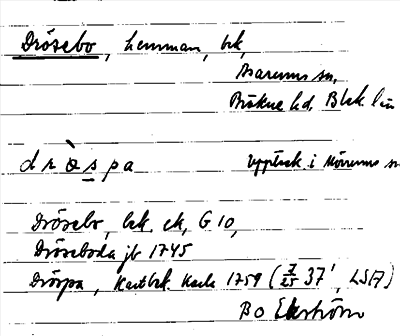 Drösebo, hemman, bk,
Asarums sn,
Bräkne hd, Blek. län
dr&#x00e6;̀s̲pa uppteck. i Mörrums sn
Drösebo, bek. ek, G 10,
Dröseboda jb 1745
Dröspa, Kartbek. Karls 1759 (7/25 37', LSA)
Bo Ekström